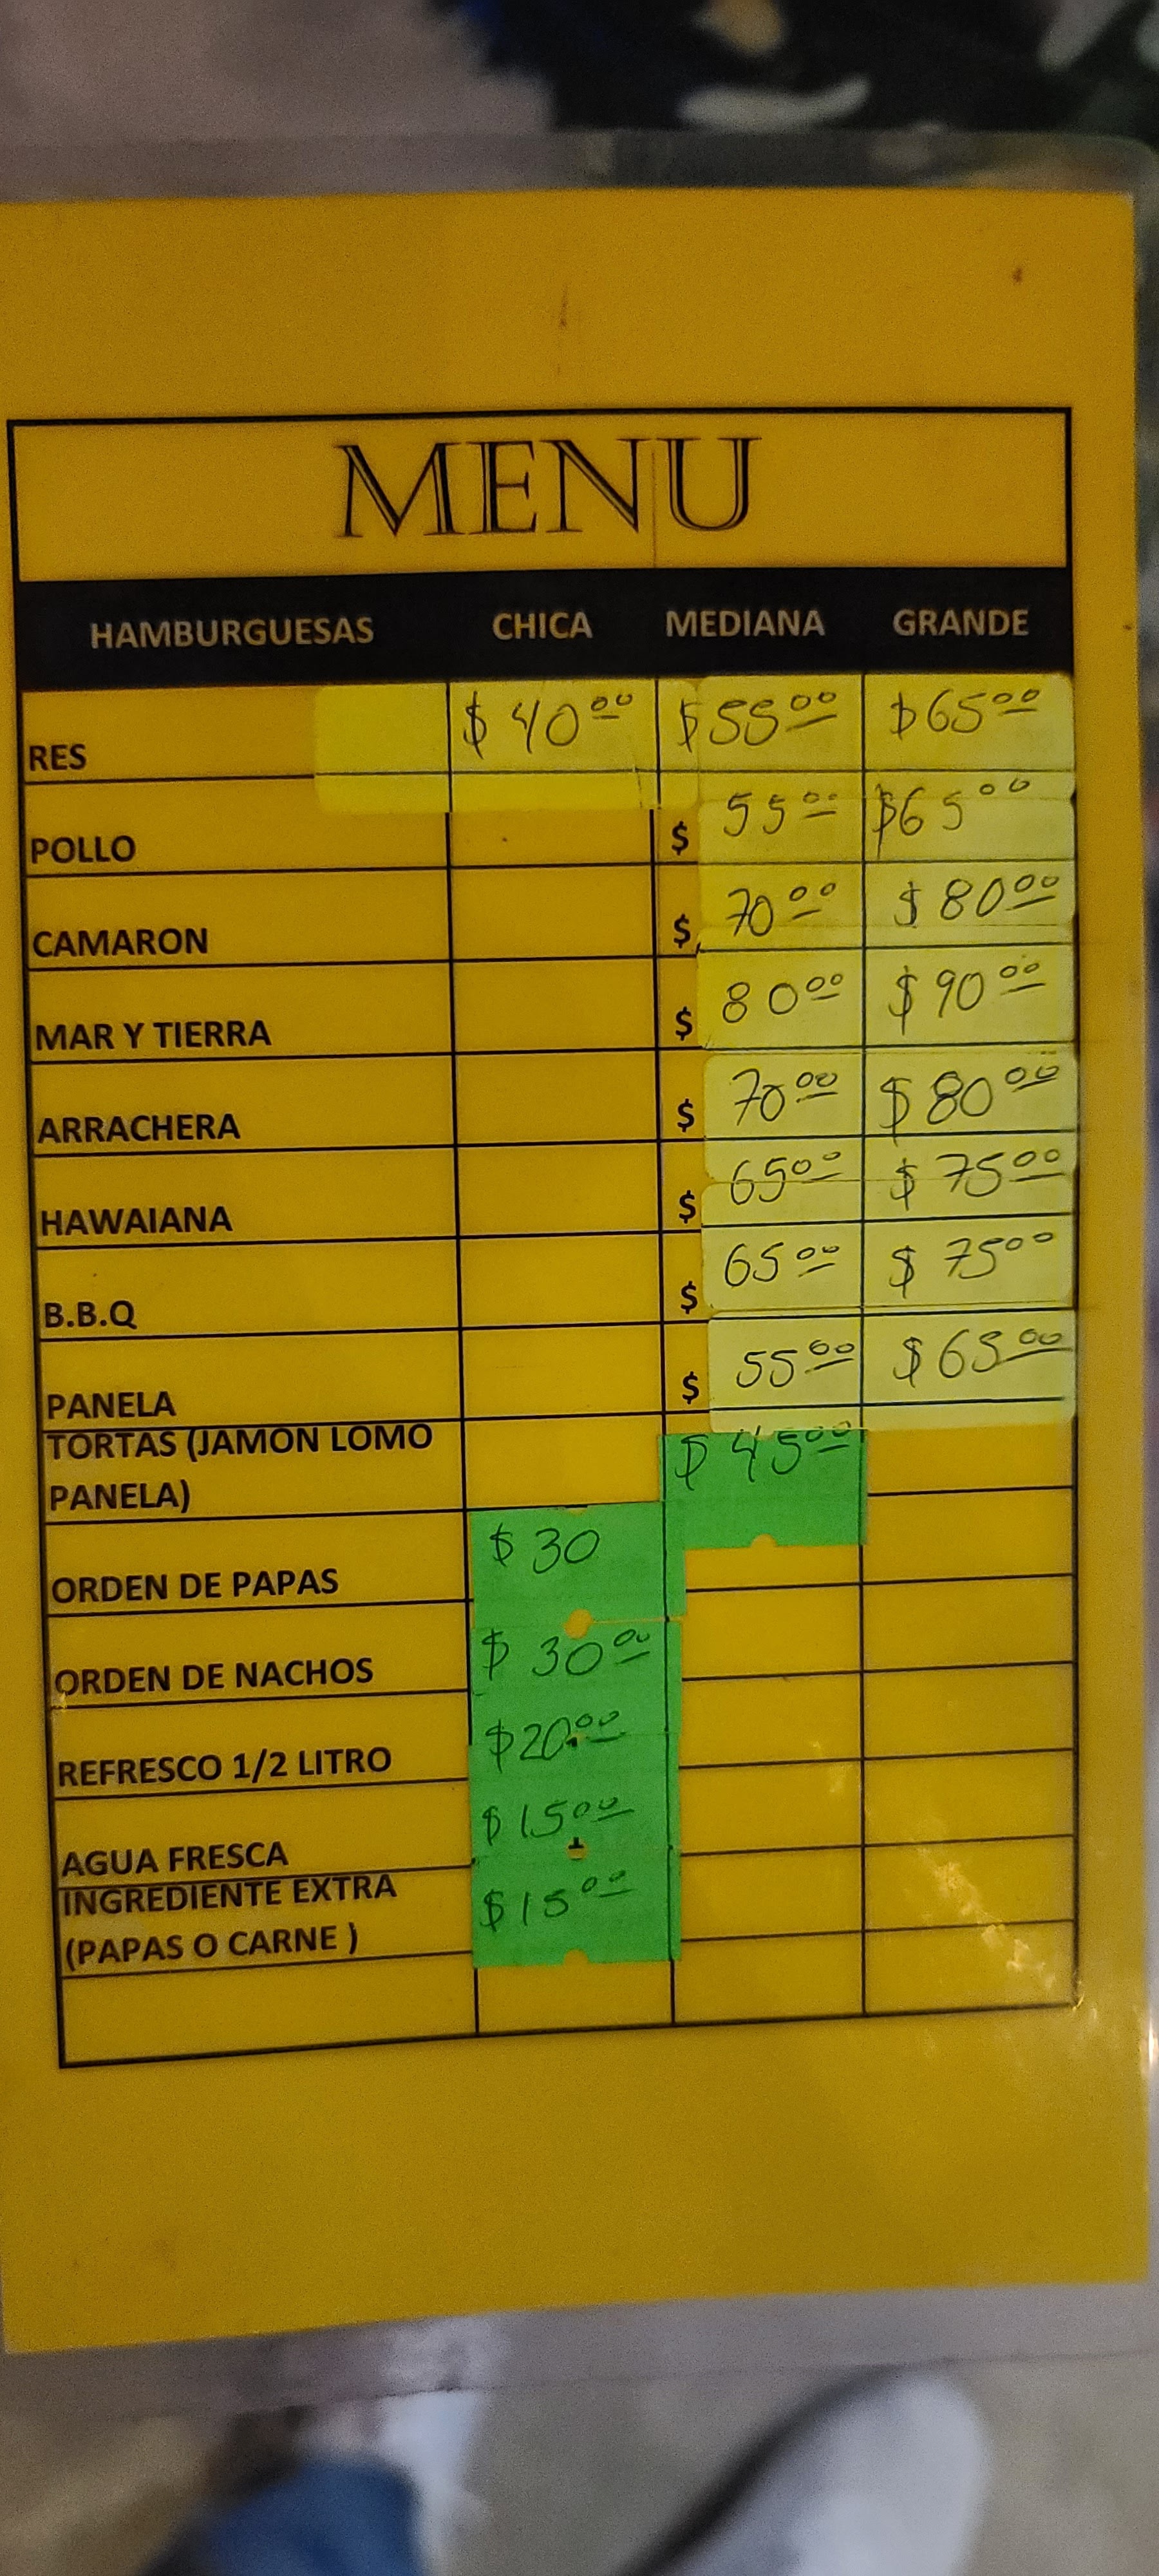 MENU
HAMBURGUESAS CHICA MEDIANA GRANDE
RES $40.00 $55.00 $65.00
POLLO $ 55.00 $65.00
CAMARON $ 70.00 $80.00
MAR Y TIERRA $ 80.00 $90.00
ARRACHERA $ 70.00 $80.00
HAWAIANA $ 65.00 $75.00
B.B.Q $ 65.00 $75.00
PANELA $ 55.00 $65.00
TORTAS (JAMON LOMO
PANELA) $45.00
ORDEN DE PAPAS $30
ORDEN DE NACHOS $30.00
REFRESCO 1/2 LITRO $20.00
AGUA FRESCA $15.00
INGREDIENTE EXTRA
(PAPAS O CARNE ) $15.00